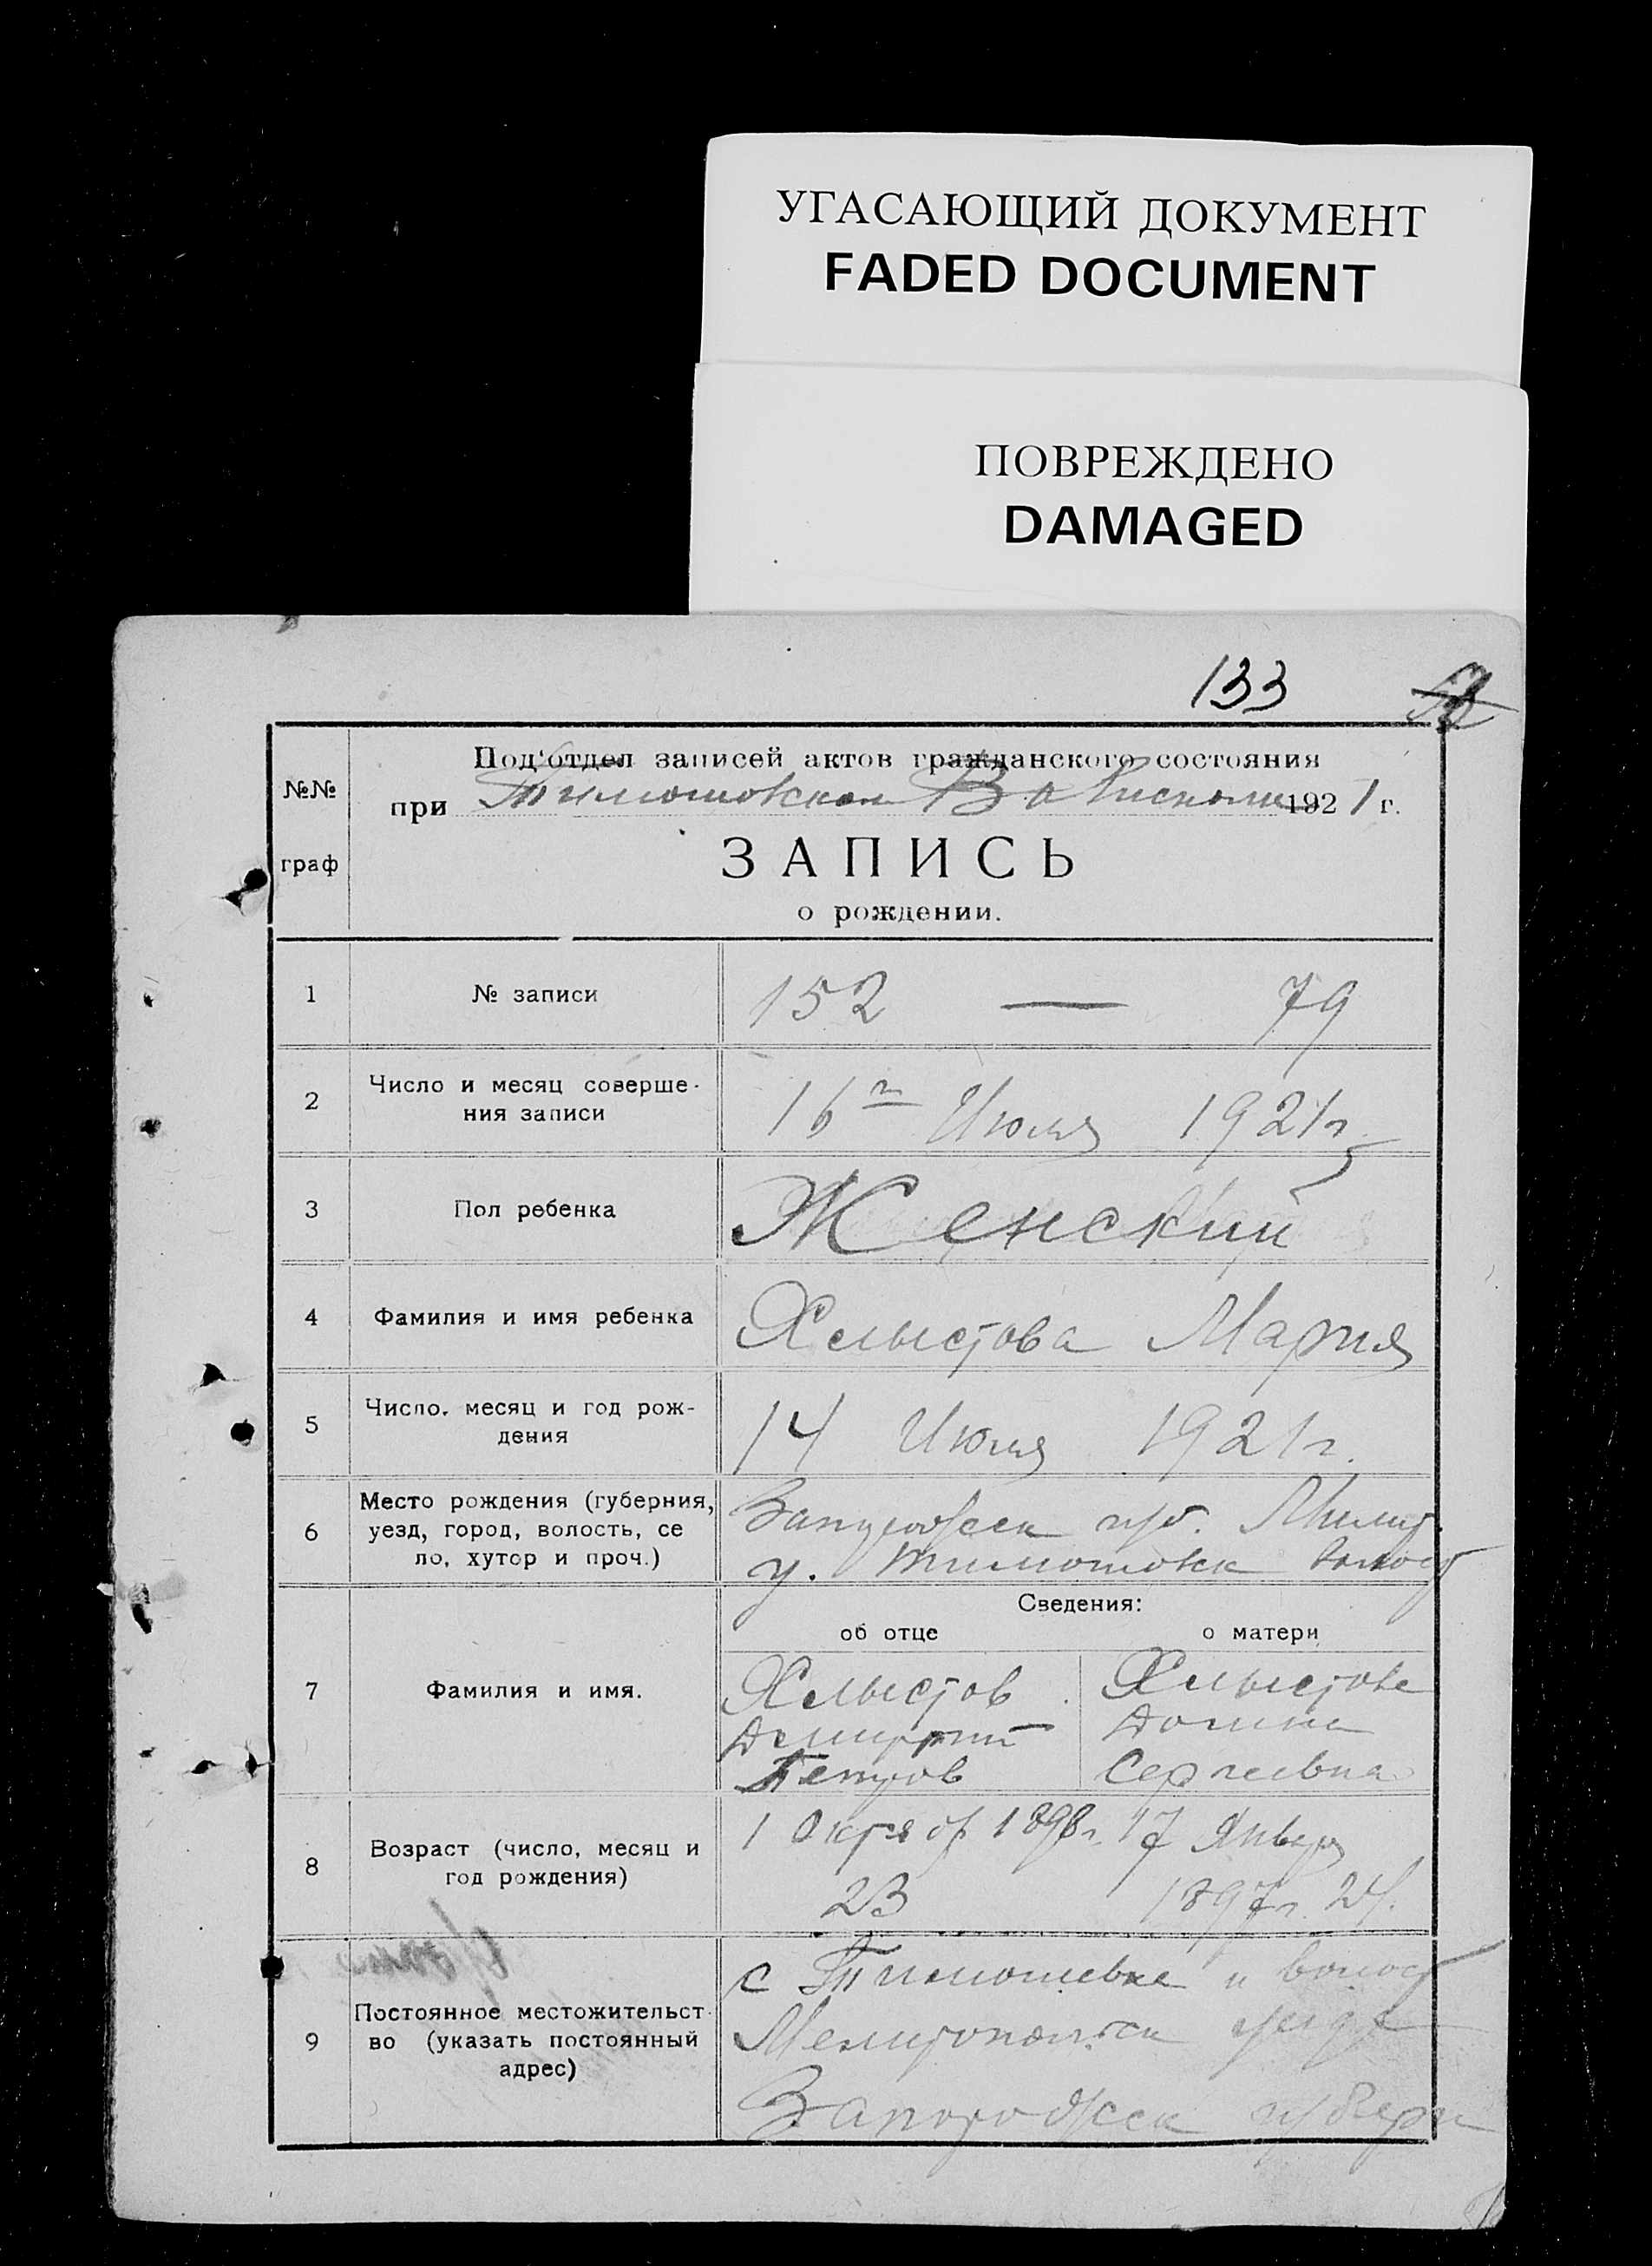 УГАСАЮЩИЙ ДОКУМЕНТ
FADED DOCUMENT
ПОВРЕЖДЕНО
DAMAGED
133
№№
граф
Под'отдел записей актов гражданского состояния
при Тимошовском Волисполк 1921 г.
ЗАПИСЬ
о рождении.
1 № записи 152 — 79
2 Число и месяц соверше-
ния записи
16го Июля 1921 г.
3 Пол ребенка Женский
4 Фамилия и имя ребенка Хлыстова Мария
5 Число, месяц и год рож-
дения
14 Июля 1921 г.
6 Место рождения (губерния,
уезд, город, волость, се
ло, хутор и проч.)
губ. Мелит.
у. Тимошовск волост
Сведения:
об отце
о матери
7 Фамилия и имя.
Хлыстов
Дмитрий
Петров
Хлыстова
Сергеевна
8 Возраст (число, месяц и
год рождения)
1 Октяб 1898 г.
23
17 Январь
1897 г. 24.
9 Постоянное местожительст-
во (указать постоянный
адрес)
с Тимошевка и волост
Мелитопольск уезда
Запорожск губерн